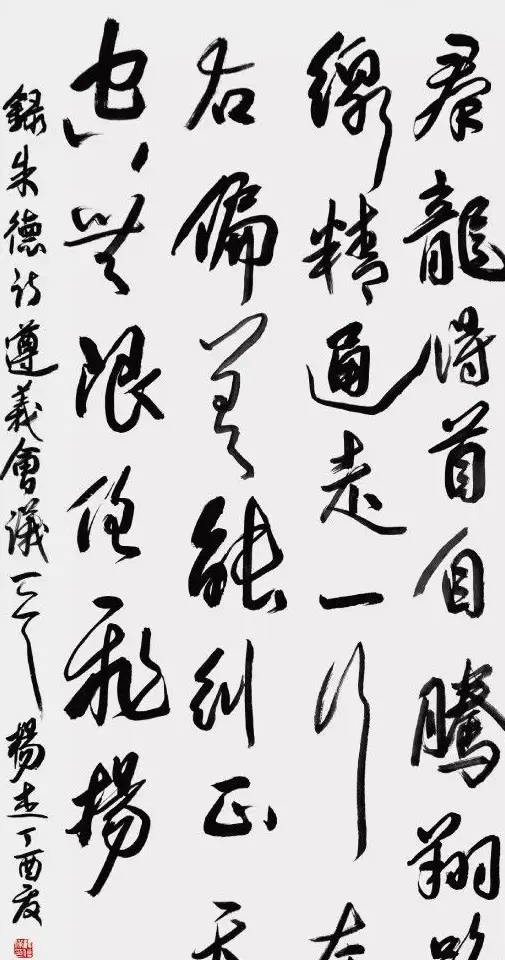 羣龍得首自騰翔路
線精通走一行左
右偏差能糾正天
空無限任飛揚
錄朱德詩遵義會議一首 楊丁酉夏